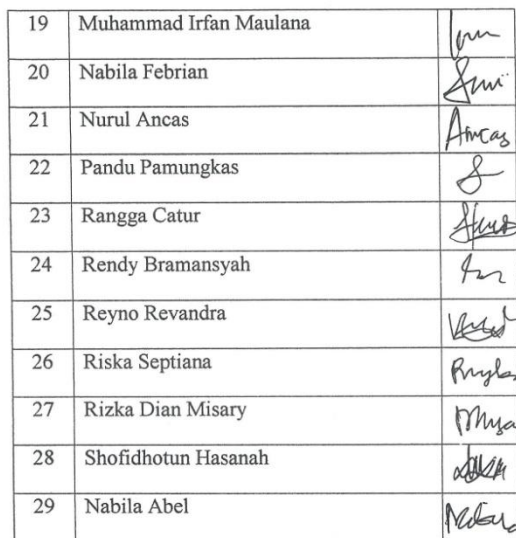 19 Muhammad Irfan Maulana
20 Nabila Febrian
21 Nurul Ancas Ancas
22 Pandu Pamungkas
23 Rangga Catur
24 Rendy Bramansyah
25 Reyno Revandra
26 Riska Septiana
27 Rizka Dian Misary
28 Shofidhotun Hasanah
29 Nabila Abel